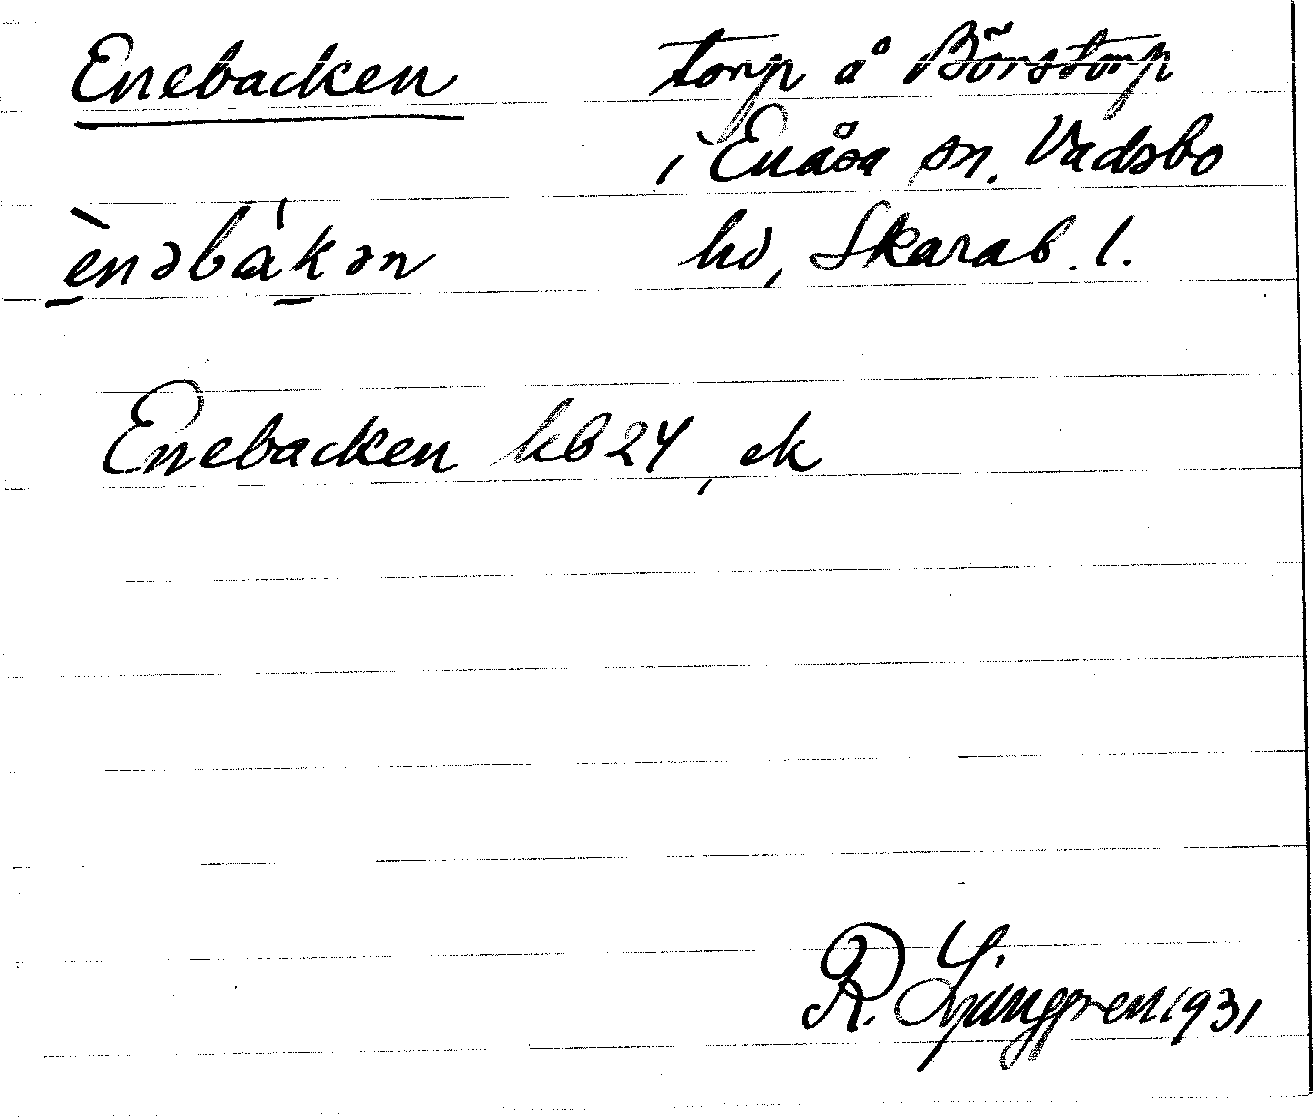 Enebacken torp å Börstorp
i Enåsa sn. Vadsbo
ènəbákən hd, Skarab. l.
Enebacken kb 24, ek
R. Ljunggren 1931